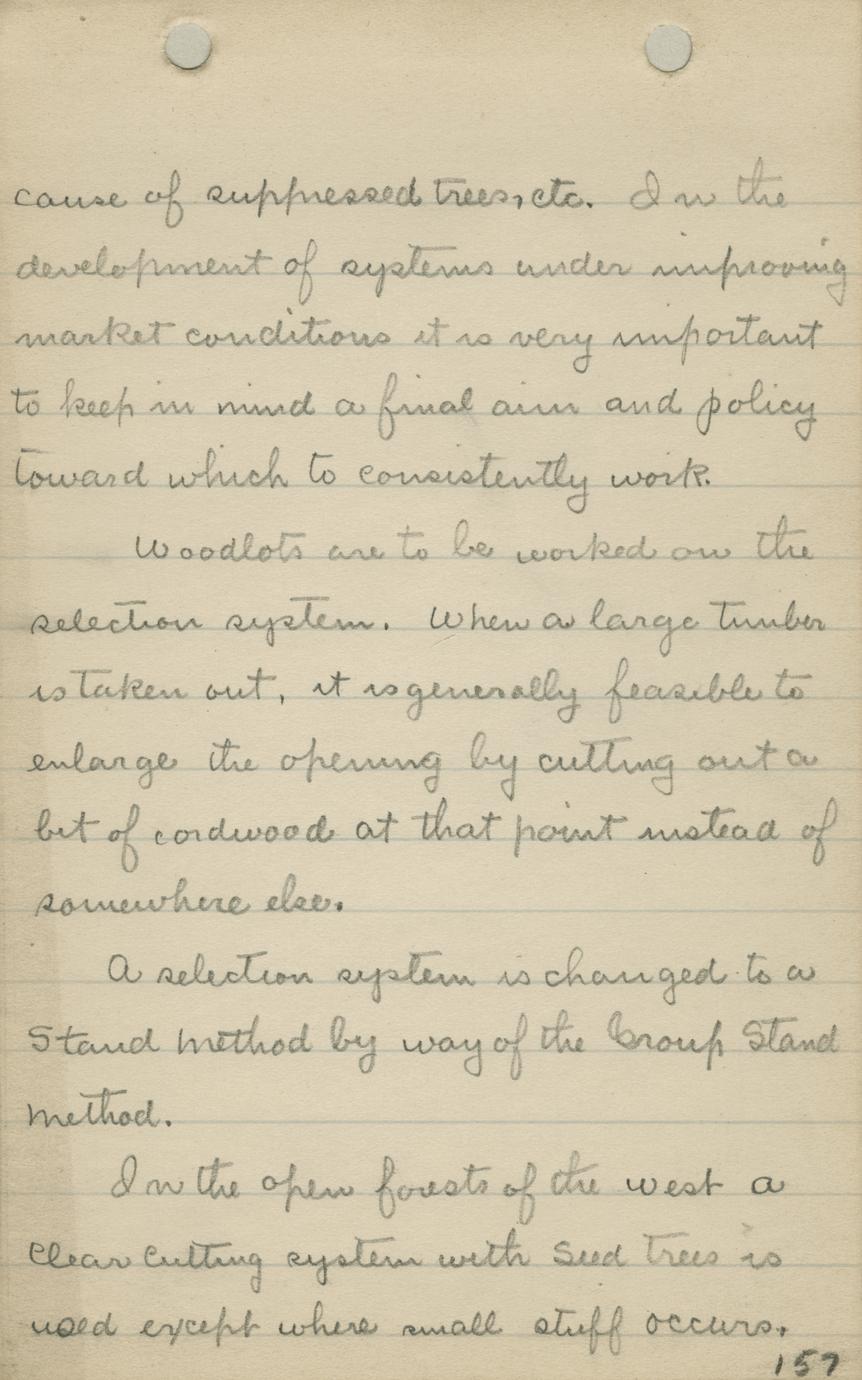 cause of suppressed trees, etc. In the
development of systems under improving
market conditions it is very important
to keep in mind a final aim and policy
toward which to consistently work.
Woodlots are to be worked on the
selection system. When a large timber
is taken out, it is generally feasible to
enlarge the opening by cutting out a
bit of cordwood at that point instead of
somewhere else.
A selection system is changed to a
Stand Method by way of the Group Stand
Method.
In the open forests of the west a
Clear Cutting system with Seed trees is
used except where small stuff occurs.
157